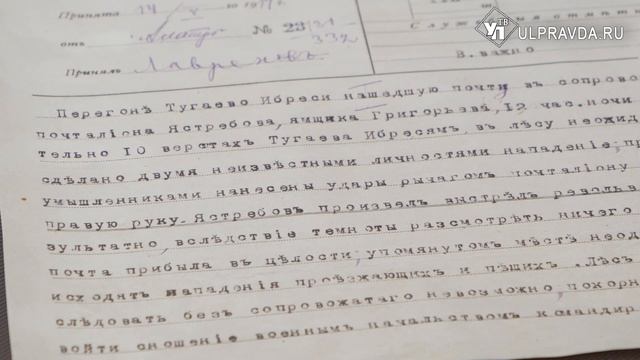 УП ТВ ULPRAVDA.RU
Принята 14 X го 19
отъ № 23
332
Принялъ Лавреновъ
Служ отмѣт
В. важно
Перегонѣ Тугаево Ибреси нашедшую почту въ сопрово
почталіона Ястребова, ямщика Григорьева, 12 час. ночи
тельно 10 верстахъ Тугаева Ибресямъ, въ лѣсу неожид
сдѣлано двумя неизвѣстными личностями нападеніе; пр
умышленниками нанесены удары рычагомъ почталіону
правую руку. Ястребовъ произвелъ выстрѣлъ револьв
зультатно, вслѣдствіе темноты разсмотрѣть ничего
почта прибыла въ цѣлости; упомянутомъ мѣстѣ неод
исходятъ нападенія проѣзжающихъ и пѣшихъ. Лѣсъ
слѣдовать безъ сопровожатаго невозможно, покорн
войти сношеніе военнымъ начальствомъ командир